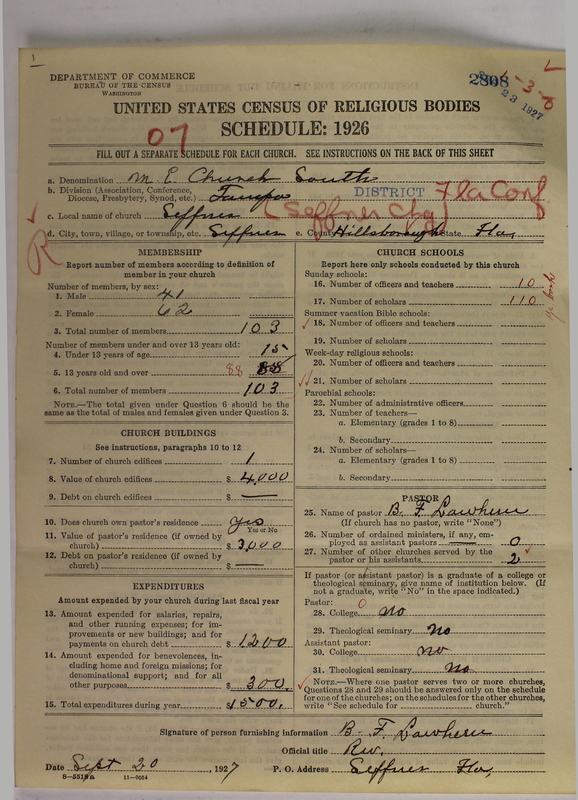 1
DEPARTMENT OF COMMERCE
BUREAU OF THE CENSUS
WASHINGTON
2808
-3-0
23 1927
UNITED STATES CENSUS OF RELIGIOUS BODIES
SCHEDULE: 1926
07
FILL OUT A SEPARATE SCHEDULE FOR EACH CHURCH. SEE INSTRUCTIONS ON THE BACK OF THIS SHEET
a. Denomination M E Church South
b. Division (Association, Conference, Diocese, Presbytery, Synod, etc.) Tampa DISTRICT Fla Conf
c. Local name of church Seffner (Seffner Chg)
d. City, town, village, or township, etc. Seffner e. County Hillsborough State Fla,
R
MEMBERSHIP
Report number of members according to definition of
member in your church
Number of members, by sex:
1. Male 41
2. Female 62
3. Total number of members 103
Number of members under and over 13 years old:
4. Under 13 years of age 15
5. 13 years old and over 88 88
6. Total number of members 103
NOTE.—The total given under Question 6 should be the
same as the total of males and females given under Question 3.
CHURCH BUILDINGS
See instructions, paragraphs 10 to 12
7. Number of church edifices 1
8. Value of church edifices $ 4,000
9. Debt on church edifices $ —
10. Does church own pastor's residence yes
Yes or No
11. Value of pastor's residence (if owned by
church) $ 3,000
12. Debt on pastor's residence (if owned by
church) $ —
EXPENDITURES
Amount expended by your church during last fiscal year
13. Amount expended for salaries, repairs,
and other running expenses; for im-
provements or new buildings; and for
payments on church debt $ 1200
14. Amount expended for benevolences, in-
cluding home and foreign missions; for
denominational support; and for all
other purposes $ 300.
15. Total expenditures during year $1500.
CHURCH SCHOOLS
Report here only schools conducted by this church
Sunday schools:
16. Number of officers and teachers 10
17. Number of scholars 110
Summer vacation Bible schools:
18. Number of officers and teachers
19. Number of scholars
Week-day religious schools:
20. Number of officers and teachers
21. Number of scholars
Parochial schools:
22. Number of administrative officers
23. Number of teachers—
a. Elementary (grades 1 to 8)
b. Secondary
24. Number of scholars—
a. Elementary (grades 1 to 8)
b. Secondary
PASTOR
25. Name of pastor B. F. Lawhern
(If church has no pastor, write "None")
26. Number of ordained ministers, if any, em-
ployed as assistant pastors 0
27. Number of other churches served by the
pastor or his assistants 2
If pastor (or assistant pastor) is a graduate of a college or
theological seminary, give name of institution below. (If
not a graduate, write "No" in the space indicated.)
Pastor: 0
28. College no
29. Theological seminary no
Assistant pastor:
30. College no
31. Theological seminary no
NOTE.—Where one pastor serves two or more churches,
Questions 28 and 29 should be answered only on the schedule
for one of the churches; on the schedules for the other churches,
write "See schedule for church."
Signature of person furnishing information B. F. Lawhern
Official title Rev.
Date Sept 20, 1927 P. O. Address Seffner Fla,
8—5519a 11—9064